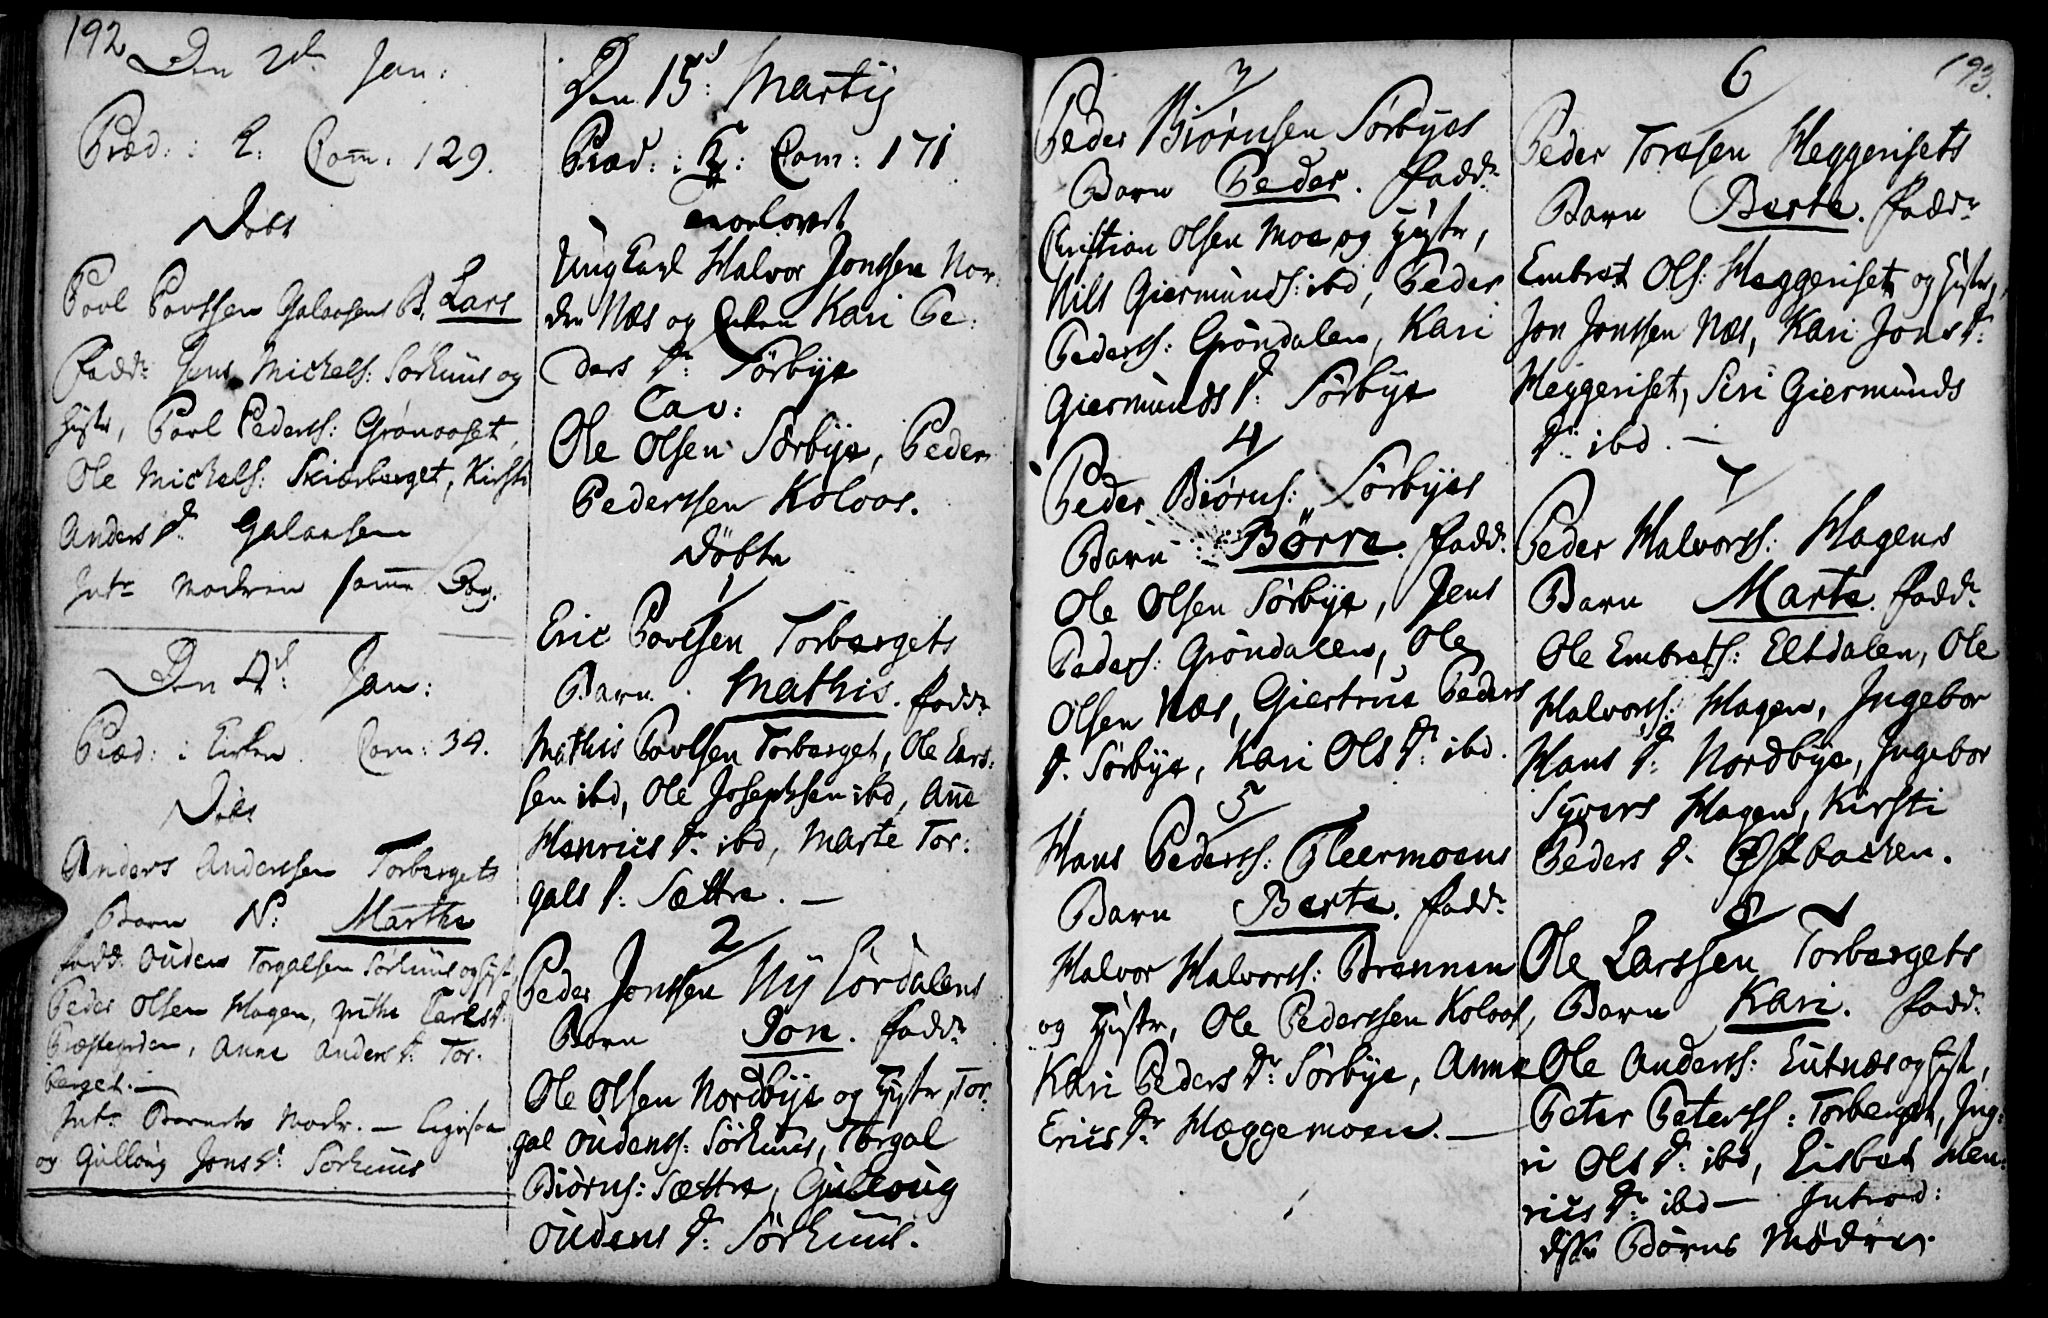 192
Den 2d Jan:
Præd: : L: Com: 129.
Döbt
Povl Povssen Galaasens B. Lars
fadd: Jens Mickels: Sörhuus og
Hustr, Povl Peders: Grönoset,
Ole Mickels: Skiærberget, Kirsti
Anders Dr Galaasen
Intr Modren samme Dag.
Den 4d: Jan:
Præd: : Com: 34.
Döbt
Anders Anderssen Torbergets
Barn N: Marthe
fadd: Ouden Torgalsen Sörhuus og Hustr,
Peder Olsen Hagen, Carls Dr
Præstenden, Anne Anders Dr: Tor-
berget. —
Intr Barnets Modr. —
og Gullöug Jons Dr: Sörhuus
Den 15d: Martij
Præd: : K: Com: 171
troelovet
Ung Carl Halvor Jonssen Nor-
dre Næs og Enken Kari Pe:
ders Dr: Sörbye
Cav:
Ole Olsen Sörbye, Peder
Pederssen Koloos.
Döbte
1
Eric Povlsen Torbergets
Barn Mathis. fadd:
Mathis Povlsen Torberget, Ole Lars:
sen ibd, Ole Josephsen ibd, Anne
Henrics Dr ibd, Marte Tor:
gals Dr: Sættre. —
2
Peder Jonssen Ny Lördalens
Barn Jon. fadd:
Ole Olsen Nordbye og Hustr, Tor-
gal Oudenss: Sörhuus, Torgal
Biörns: Sættre, Gulloug
Oudens Dr: Sörhuus.
193.
3
Peder Biörnsen Sörbyes
Barn Peder. fadd:
Cristian Olsen Moe og Hustr,
Nils Giermunds: ibd, Peder
Pederss: Gröndalen, Kari
Giermunds Dr: Sörbye
4
Peder Biörns: Sörbyes
Barn Börre. fadd:
Ole Olsen Sörbye, Jens
Peders: Gröndalen, Ole
Olsen Næs, Giertrue Peders
Dr. Sörbye, Kari Ols Dr: ibd.
5
Hans Pederss: Fleermoens
Barn Berte. fadd:
Halvor Halvorss: Brennen
og Hustr, Ole Pederssen Koloos,
Kari Peders Dr: Sörbye, Anne
Erics Dr Hæggemoen. —
6
Peder Toresen Heggerisets
Barn Berte. fadd:
Embret Ols: Heggeriset og Hustr,
Jon Jonssen Næs, Kari Jons Dr:
Heggeriset, Siri Giermunds
Dr: ibd. —
7
Peder Halvorss: Hagens
Barn Marte. fadd:
Ole Embrets: Eltdalen, Ole
Halvorss: Hagen, Ingebor
Hans Dr: Nordbye, Ingebor
Syvers Hagen, Kirsti
Peders Dr. Østbacken.
8
Ole Larssen Torbergets
Barn Kari. fadd:
Ole Anderss: Lutnæs og Hust,
Peter Peterss: Torberget, Ing:
ri Ols Dr: ibd, Lisbet Hen:
rics Dr: ibd — Introd:
disse Börns Mödre.